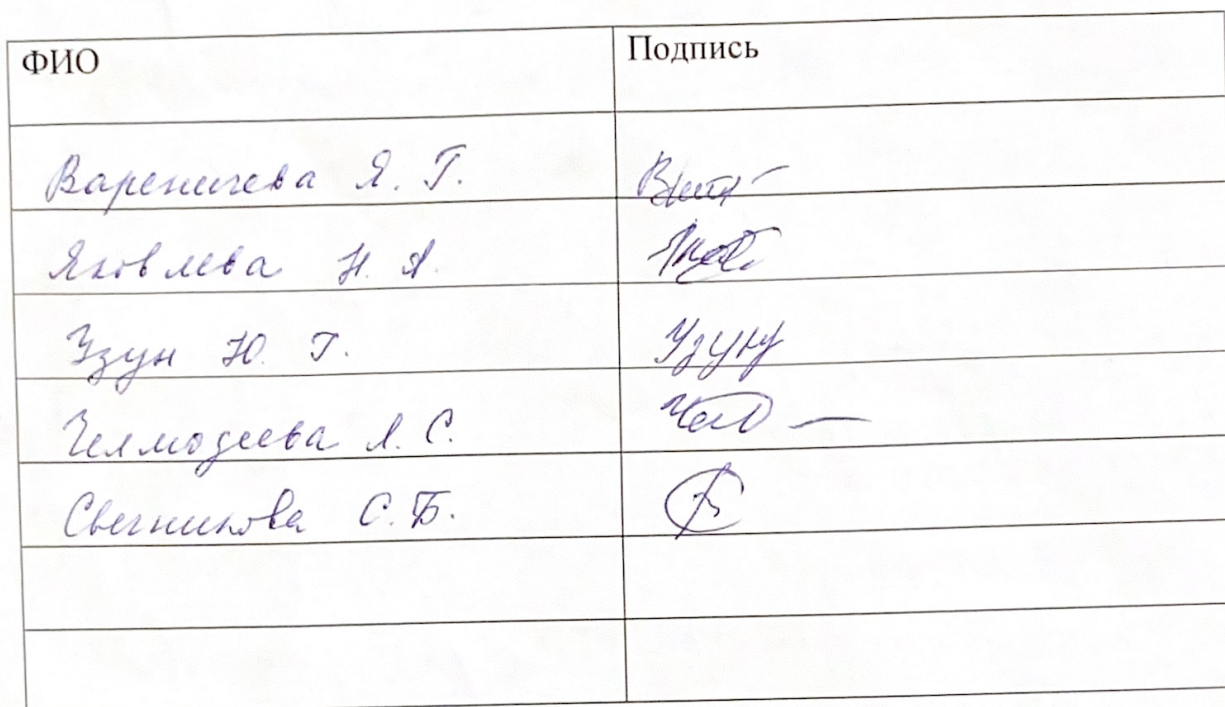 ФИО Подпись
Вареничева Я. Г.
Яковлева Н. А.
Узун Ю. Г. Узуну
Челмодеева А. С.
Свечникова С. Б.